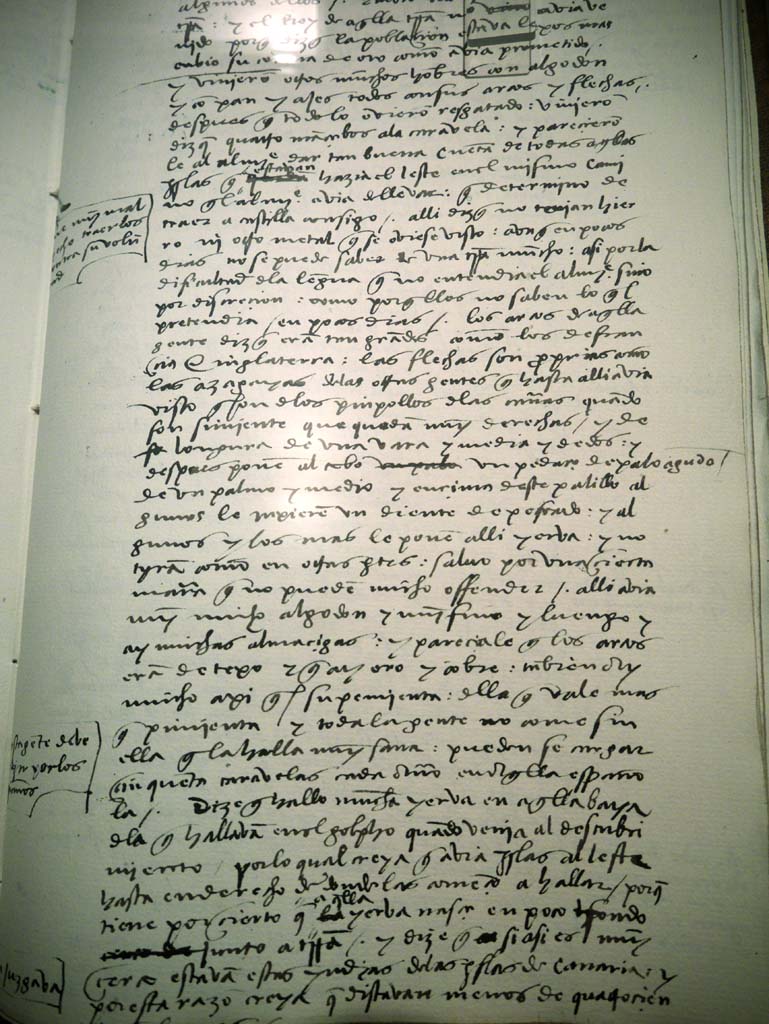 tr̃ra : y el Rey de aq̃lla tr̃ra no avia ve
nido porq̃ dizq̃ la poblaçion estava lexos mas
enbio su corona de oro como avia prometido
y vinierõ otros muchos hõbres con algodon
y cõ pan y ajes todos con sus arcos y flechas /.
despues q̃ todo lo oviero resgatado : vinierõ
dizq̃ quatro mãcebos a la caravela : y pareçierõ
le al almi.e dar tan buena cuenta de todas aq̃llas
yslas q̃ estavan hazia el leste en el mismo cami
no q̃ l almi.e avia de llevar : q̃ determino de
traer a castilla consigo /. alli dizq̃ no tenian hier
ro ni otro metal q̃ se oviese visto : aunq̃ en pocos
dias no se puede saber de una tr̃ra mucho : asi por la
dificultad dla lengua q̃ no entendia el almi.e sino
por discreçion : como porq̃ llos no saben lo q̃ l
pretendia / en pocos dias /. los arcos de aq̃lla
gente dizq̃ erã tan grãdes como los de fran
çia E inglaterra : las flechas son proprias como
las azagayas delas otras gentes q̃ hasta alli avia
visto q̃ son de los pinpollos dlas cañas quãdo
son simiente que quedã muy derechas / y de
longura de una vara y media y de dos : y
despues ponẽ al cabo un pedaço de palo agudo /
de un palmo y medio y ençima deste palillo al
gunos le inxierẽ un diente de pescado : y al
gunos y los mas le ponẽ alli yerva : y no
tyrã como en otras ptes : salvo por una çierta
manr̃a q̃ no puedẽ mucho offender /. alli avia
muy mucho algodon y muy fino y luengo y
ay muchas almaçigas : y pareçiale q̃ los arcos
erã de texo : y q̃ ay oro y cobre : tãbien ay
mucho axi q̃s su pimienta : dlla q̃ vale mas
q̃ pimienta y toda la gente no come sin
ella q̃ la halla muy sana : pueden se cargar
çinquẽta caravelas cada año en aq̃lla españo
la /. Dize q̃ hallo mucha yerva en aq̃lla baya
dla q̃ hallavã en el golpho quãdo venia al descubri
miento / por lo qual creya q̃ avia yslas al leste
hasta en derecho de donde las começo a hallar / porq̃
tiene por çierto q̃ aq̃lla yerva naçe en poco fondo
junto a tr̃ra /. y dize q̃ si asi es muy
çerca estavã estas yndias delas yslas de Canaria : y
por esta razõ creya q̃ distavan menos de quatroçien
muy mal
hecho traerlos
contra su volũ
tad